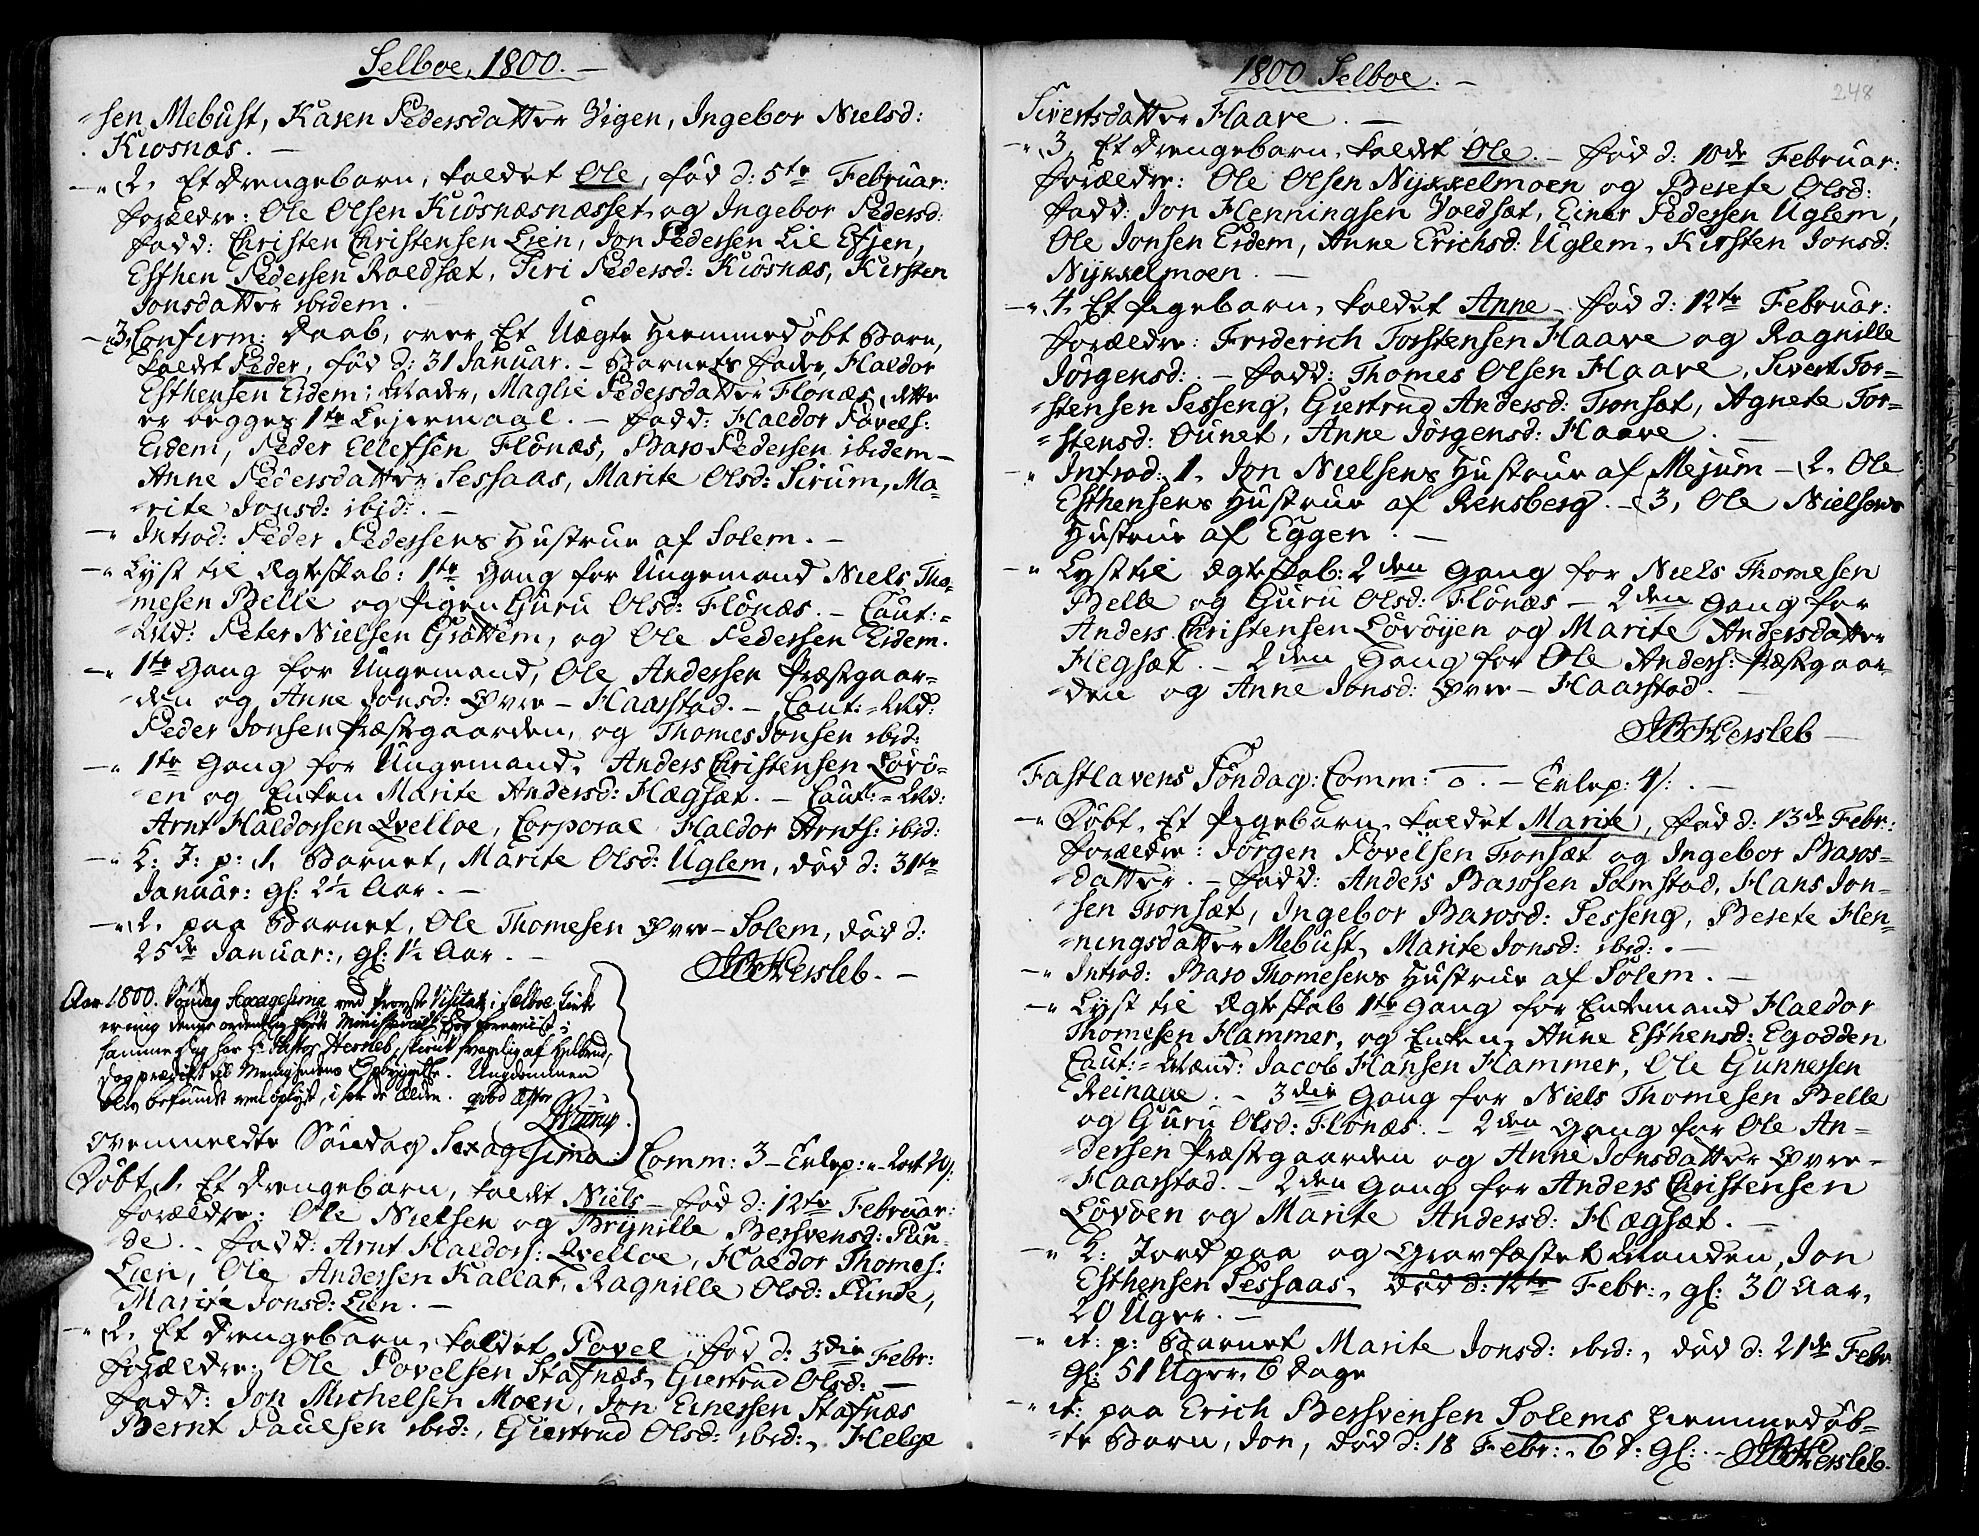 Selboe, 1800. –
-sen Mebust, Karen Pedersdatter Vigen, Ingebor Nielsd:
Kiösnæs. –
–" 2. Et Drengebarn, kaldet Ole, fød d: 5te Februar:
Forældre: Ole Olsen Kiösnæsnæsset og Ingebor Pedersd:
Fadd: Christen Christensen Lien, Jon Pedersen Lie Efjen,
Esthen Pedersen Roldsæt, Siri Pedersd: Kiösnæs, Kirsten
Jonsdatter ibidem.
–" 3. Confirm: Daab, over Et Uægte Hiemmedöbt Barn,
kaldet Peder, fød d: 31 Januar. – Barnets Fader, Haldor
Esthensen Eidem; Moder, Maglie Pedersdatter Flönæs, dette
er begges 1te Leiermaal. – Fadd: Haldor Povels:
Eidem, Peder Ellefsen Flönæs, Baro Pedersen ibidem –
Anne Pedersdatter Sessaas, Marite Olsd: Sirum, Ma-
-rite Jonsd: ibid:. –
–" Introd: Peder Pedersens Hustrue af Solem. –
–" Lyst til Ægteskab: 1te Gang for Ungemand Niels Tho-
-mesen Belle og Pigen Guru Olsd: Flönæs. – Caut:-
-Md: Peter Nielsen Gröttem, og Ole Pedersen Eidem.
–" 1te Gang for Ungemand, Ole Andersen Præstgaar-
-den og Anne Jonsd: Øvre – Haarstad. – Caut:-Md:
Peder Jonsen Præstgaarden, og Thomes Jonsen ibid:
–" 1te Gang for Ungemand, Anders Christensen Lövö-
en og Enken Marite Andersd: Hægsæt. – Caut:-Md:
Arnt Haldorsen Qvelloe, Corporal Haldor Arnts: ibid:
–" K: J: p: 1. Barnet, Marite Olsd: Uglem, død d: 31te
Januar: gl: 2½ Aar. –
–" 2. paa Barnet, Ole Thomesen Øvre – Solem, død d:
25de Januar:, gl: 1½ Aar. –
Hersleb. –
Aar 1800. Söndag Sexagesima ved Provste Visitatz i Sælboe Kirke
er mig denne ordentlig førte Ministerial Bog foreviist.
samme Dag har Hr Pastor Hersleb, skiönt svagelig af Helbred,
prædiket til Menighedens Opbyggelse. Ungdommen
blev befundet vel oplyst, i sær de Ældre.
ovenmeldte Söndag Sexagesima: Comm: 3 – Exlep:
Döbt 1. Et Drengebarn, kaldet Niels – fød d: 12te Februar:
Forældre: Ole Nielsen og Brynille Bersvensd: Pun-
de. – Fadd: Arnt Haldors: Qvelloe, Haldor Thomes:
Lien, Ole Andersen Kallar, Ragnille Olsd: Punde,
Marite Jonsd: Lien. –
–" 2. Et Drengebarn, kaldet Povel, fød d: 3die Febr:
Forældre: Ole Povelsen Stafnæs, Giertrud Olsd: –
Fadd: Jon Michelsen Moen, Jon Einersen Stafnæs
Bernt Paulsen ibid:, Giertrud Olsd: ibid:, Helge
1800 Selboe. –
248
Sivertsdatter Haave. –
–" 3. Et Drengebarn, kaldet Ole. – fød d: 10de Februar:
Forældre: Ole Olsen Nykkelmoen og Berete Olsd:
Fadd: Jon Henningsen Voldsæt, Einer Pedersen Uglem,
Ole Jonsen Eidem, Anne Erichsd: Uglem, Kirsten Jonsd:
Nykkelmoen. –
–" 4. Et Pigebarn, kaldet Anne – fød d: 12te Februar:
Forældre: Friderich Torstensen Haave og Ragnille
Jörgensd:. – Fadd: Thomes Olsen Haave, Sivert Tor-
-stensen Sesseng, Giertrud Andersd: Tronsæt, Agnete Tor-
-stensd: Ounet, Anne Jörgensd: Haave. –
–" Introd: 1. Jon Nielsens Hustrue af Mejum – 2. Ole
Esthensens Hustrue af Rensberg. – 3. Ole Nielsens
Hustrue af Eggen. –
–" Lyst til Ægteskab: 2den Gang for Niels Thomesen
Belle og Guru Olsd: Flönæs – 2den Gang for
Anders Christensen Lövöyen og Marite Andersdatter
Hegsæt. – 2den Gang for Ole Anders: Præstgaar-
-den og Anne Jonsd: Øvre – Haarstad. –
Hersleb –
Fastlavens Söndag: Comm: o. – Exlep: 4/:. –
–" Döbt. Et Pigebarn, kaldet Marite, fød d: 13de Febr:
Forældre: Jörgen Povelsen Tronsæt og Ingebor Baros-
datter. – Fadd: Anders Barosen Samstad, Hans Jon-
-sen Tronsæt, Ingebor Barosd: Sesseng, Berete Hen-
-ningsdatter Mebust, Marite Jonsd: ibid:. –
–" Introd: Baro Thomesens Hustrue af Solem. –
–" Lyst til Ægteskab 1te Gang for Enkemand Haldor
Thomesen Hammer, og Enken, Anne Esthensd: Egodden
Caut:-Mænd: Jacob Hansen Hammer, Ole Gunnersen
Reinaae. – 3die Gang for Niels Thomesen Belle
og Guru Olsd: Flönæs. – 2den Gang for Ole An-
-dersen Præstgaarden og Anne Jonsdatter Øvre –
-Haarstad. – 2den Gang for Anders Christensen
Lövöen og Marite Andersd: Hægsæt. –
–" K: Jord paa og Gravfæstet Manden, Jon
Esthensen Sessaas, Død d: 12te Febr:, gl: 30 Aar,
20 Uger. –
–" it: p: Barnet Marite Jonsd: ibid:, død d: 21de Febr
gl: 51 Uger, 6 Dage
–" it: paa Erich Bersvensen Solems hiemmedöb-
-te Barn, Jon, død d: 18 Febr:, 6 d: gl:. – Hersleb.